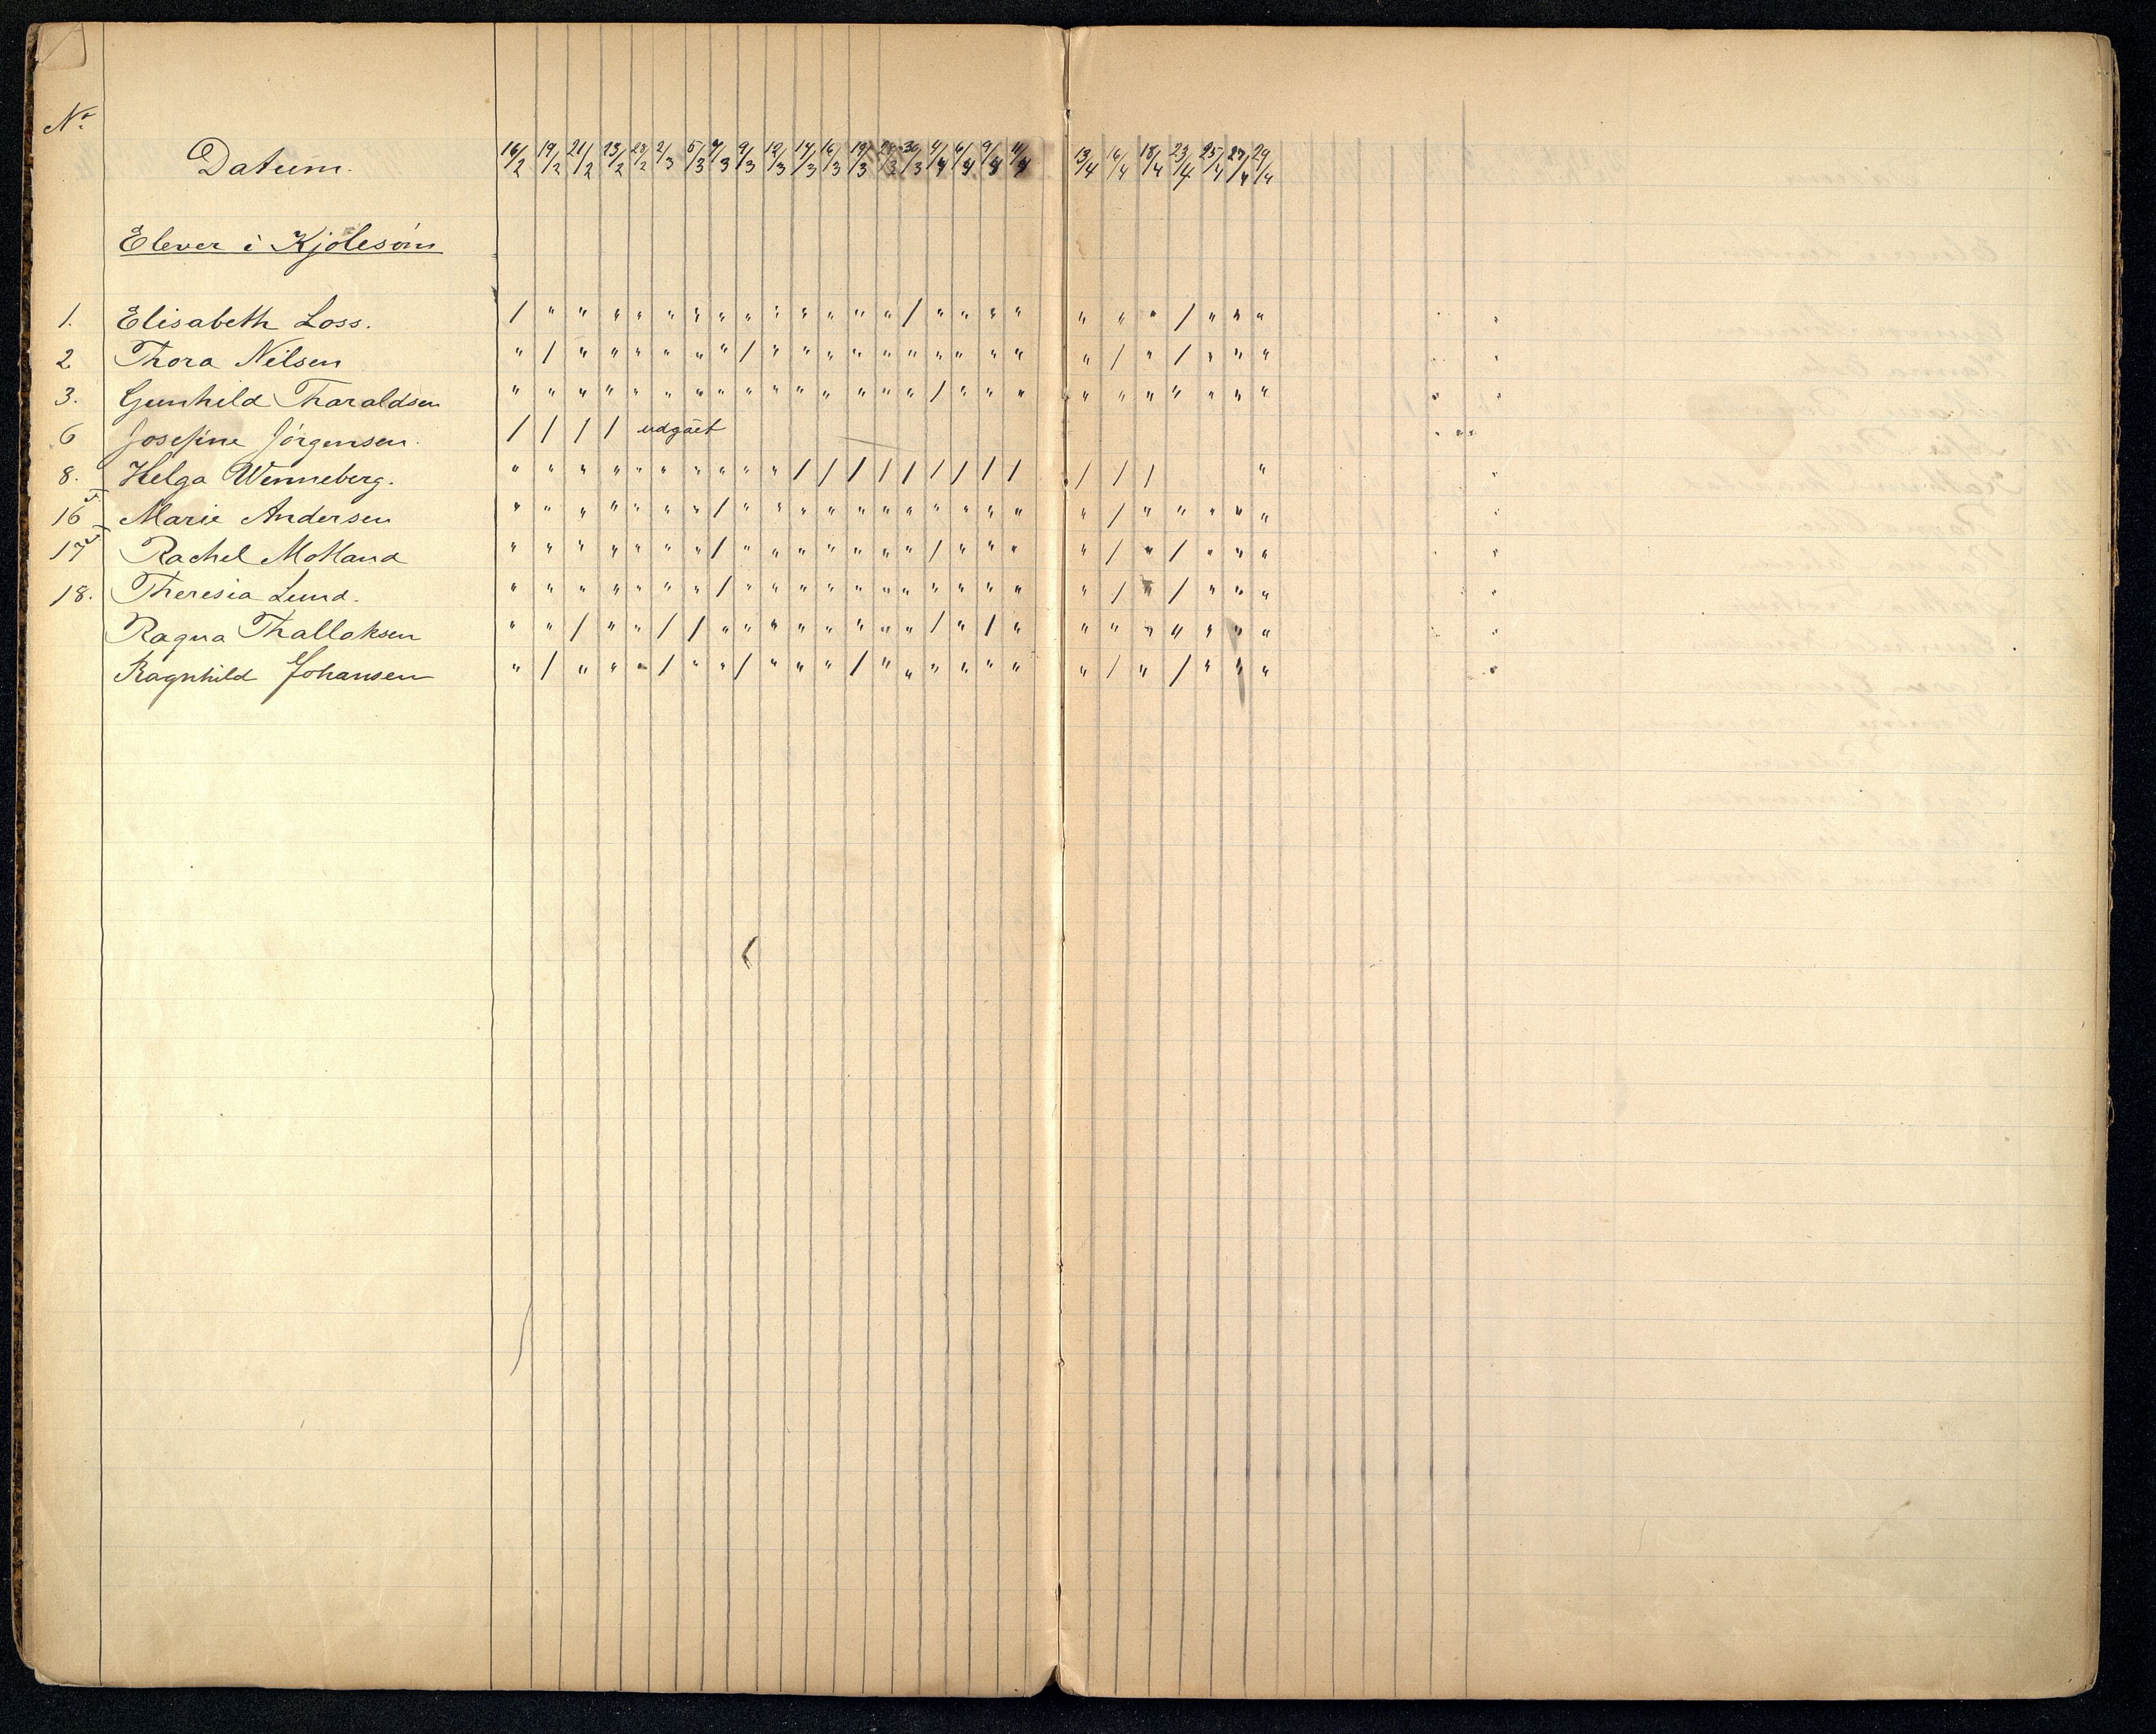 No.
Datum. 16/2 19/2 21/2 23/2 28/2 2/3 5/3 7/3 9/3 12/3 14/3 16/3 19/3 28/3 30/3 4/4 6/4 9/4 11/4 13/4 16/4 18/4 23/4 25/4 27/4 29/4
Elever i Kjolesöm
1. Elisabeth Loss. / " " " " " " " " " " " " " / " " " " " " " / " " "
2 Thora Nilsen " / " " " " " " / " " " " " " " " " " " / " / " " "
3. Gunhild Tharaldsen " " " " " " " " " " " " " " " / " " " " " " " " " "
6 Josefine Jörgensen. / / / / udgået
8. Helga Wenneberg. " " " " " " " " " " / / / / / / / / / / / / "
16 Marie Andersen " " " " " " " / " " " " " " " " " " " " / " " " " "
17 Rachel Motland " " " " " " " / " " " " " " " / " " " " / " / " " "
18. Theresia Lund. " " " " " " " / " " " " " " " " " " " " / " / " " "
Ragna Thalloksen " " / " " / / " " " " " " " " / " / " " " " " " " "
Ragnhild Johansen " / " " " / " " / " " " / " " " " " " " / " / " " "